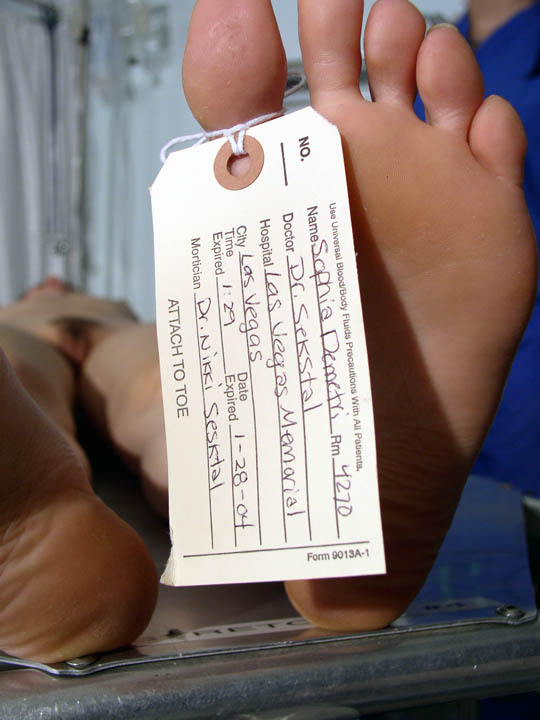 NO.
Use Universal Blood/Body Fluids Precautions With All Patients.
Name Sophia Demetri Rm 4270
Doctor Dr. Sekstal
Hospital Las Vegas Memorial
City Las Vegas
Time Expired 1:27 Date Expired 1-28-04
Mortician Dr. Nikki Sesktal
ATTACH TO TOE
Form 9013A-1